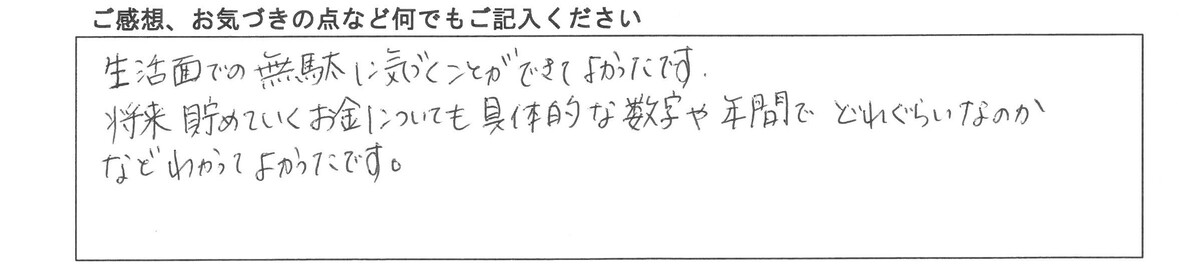 ご感想、お気づきの点など何でもご記入ください
生活面での無駄に気づくことができてよかったです.
将来貯めていくお金についても具体的な数字や年間でどれぐらいなのか
などわかってよかったです。